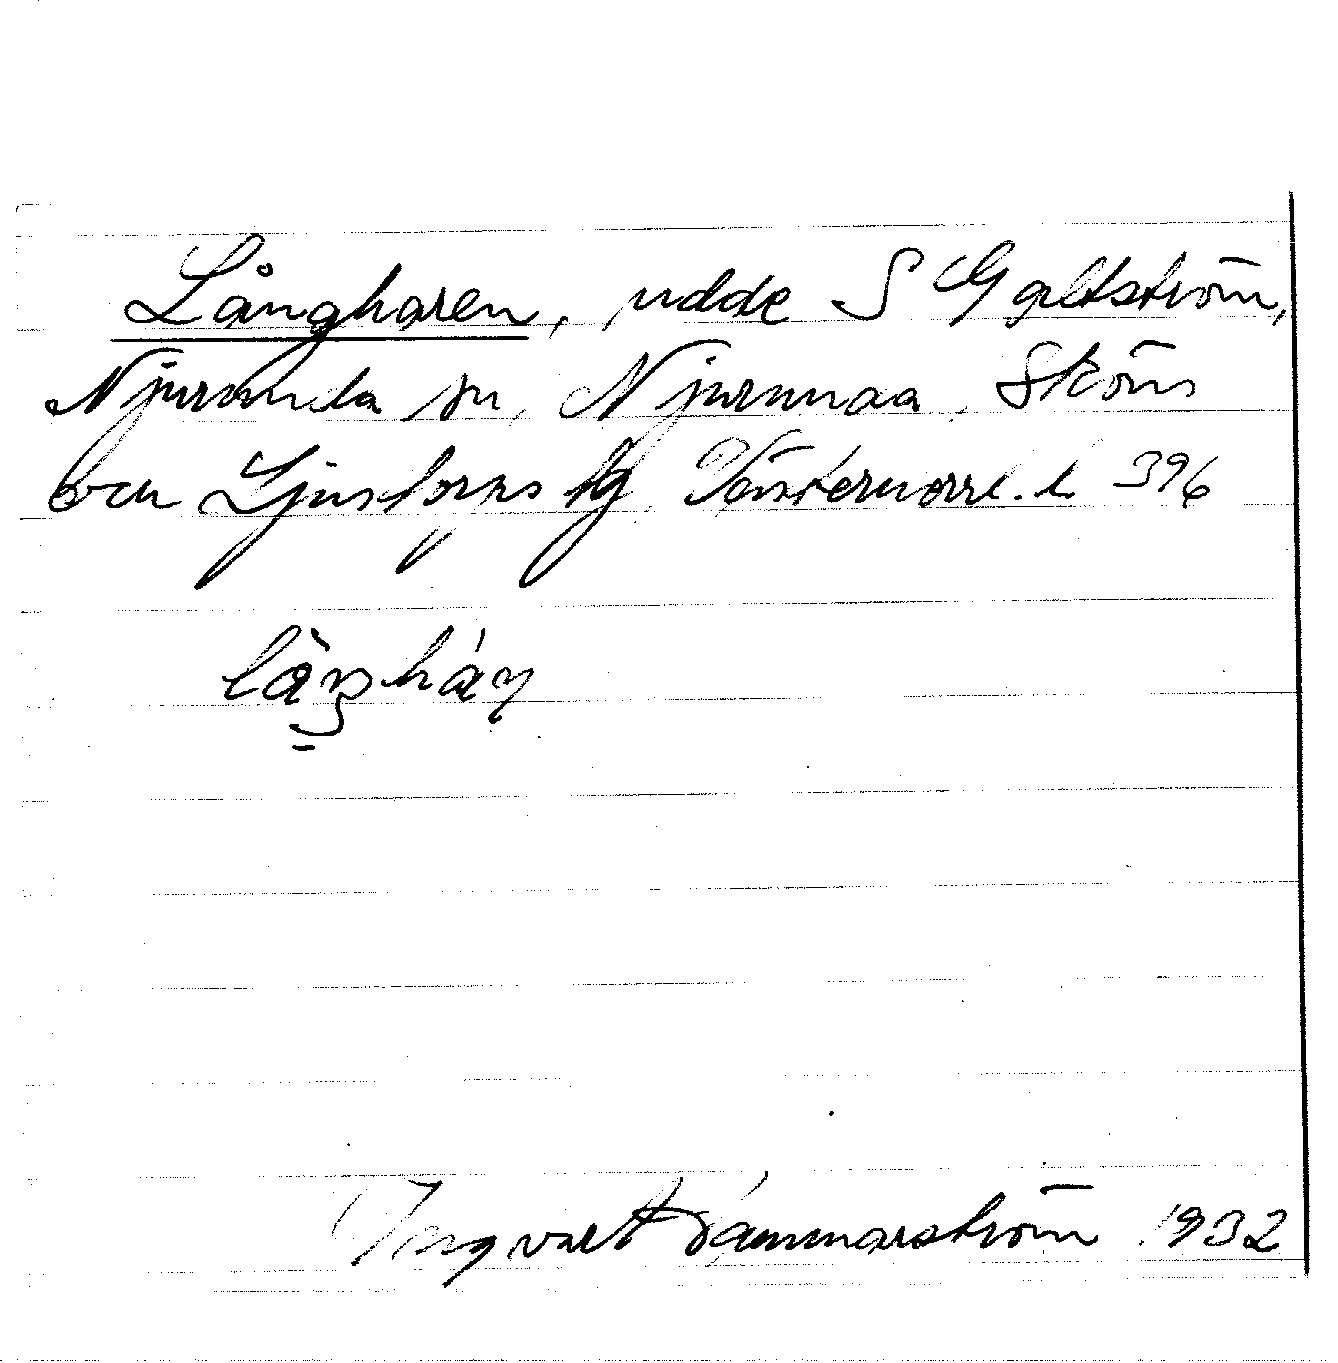 Långharen, udde S Galtström,
Njurunda sn, Njurunda, Sköns
och Ljustorps tg Västernorrl. l. 396
làŋhán
Ingvart Hammarström 1932